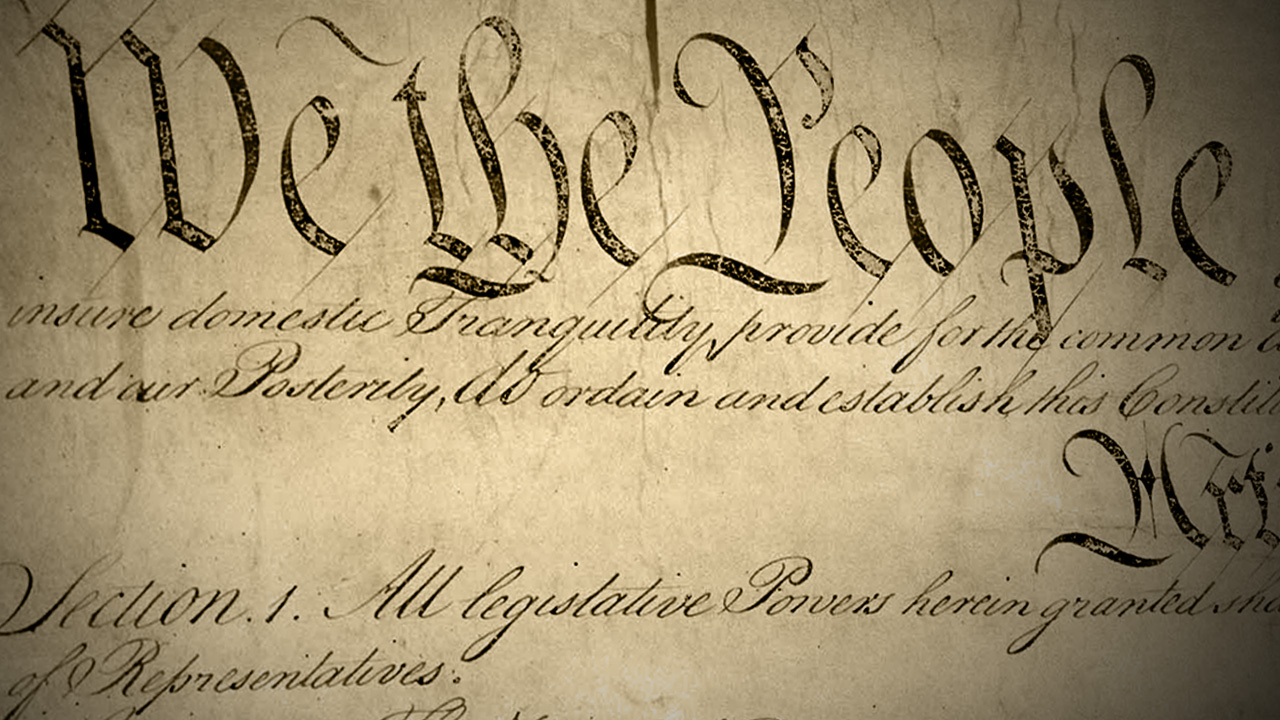 We the People
insure domestic Tranquility, provide for the common
and our Posterity, do ordain and establish this Constit
Arti
Section. 1. All legislative Powers herein granted sha
of Representatives.